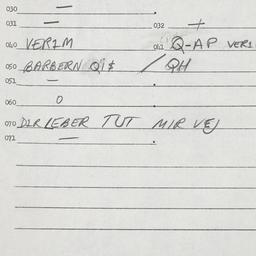 030 —
031 — 032 +
040 VER1M 041 Q-AP VER1
050 BARBERN Q1$ / QH
051 —
060 0
070 DIR LEBER TUT MIR VEJ
071 —